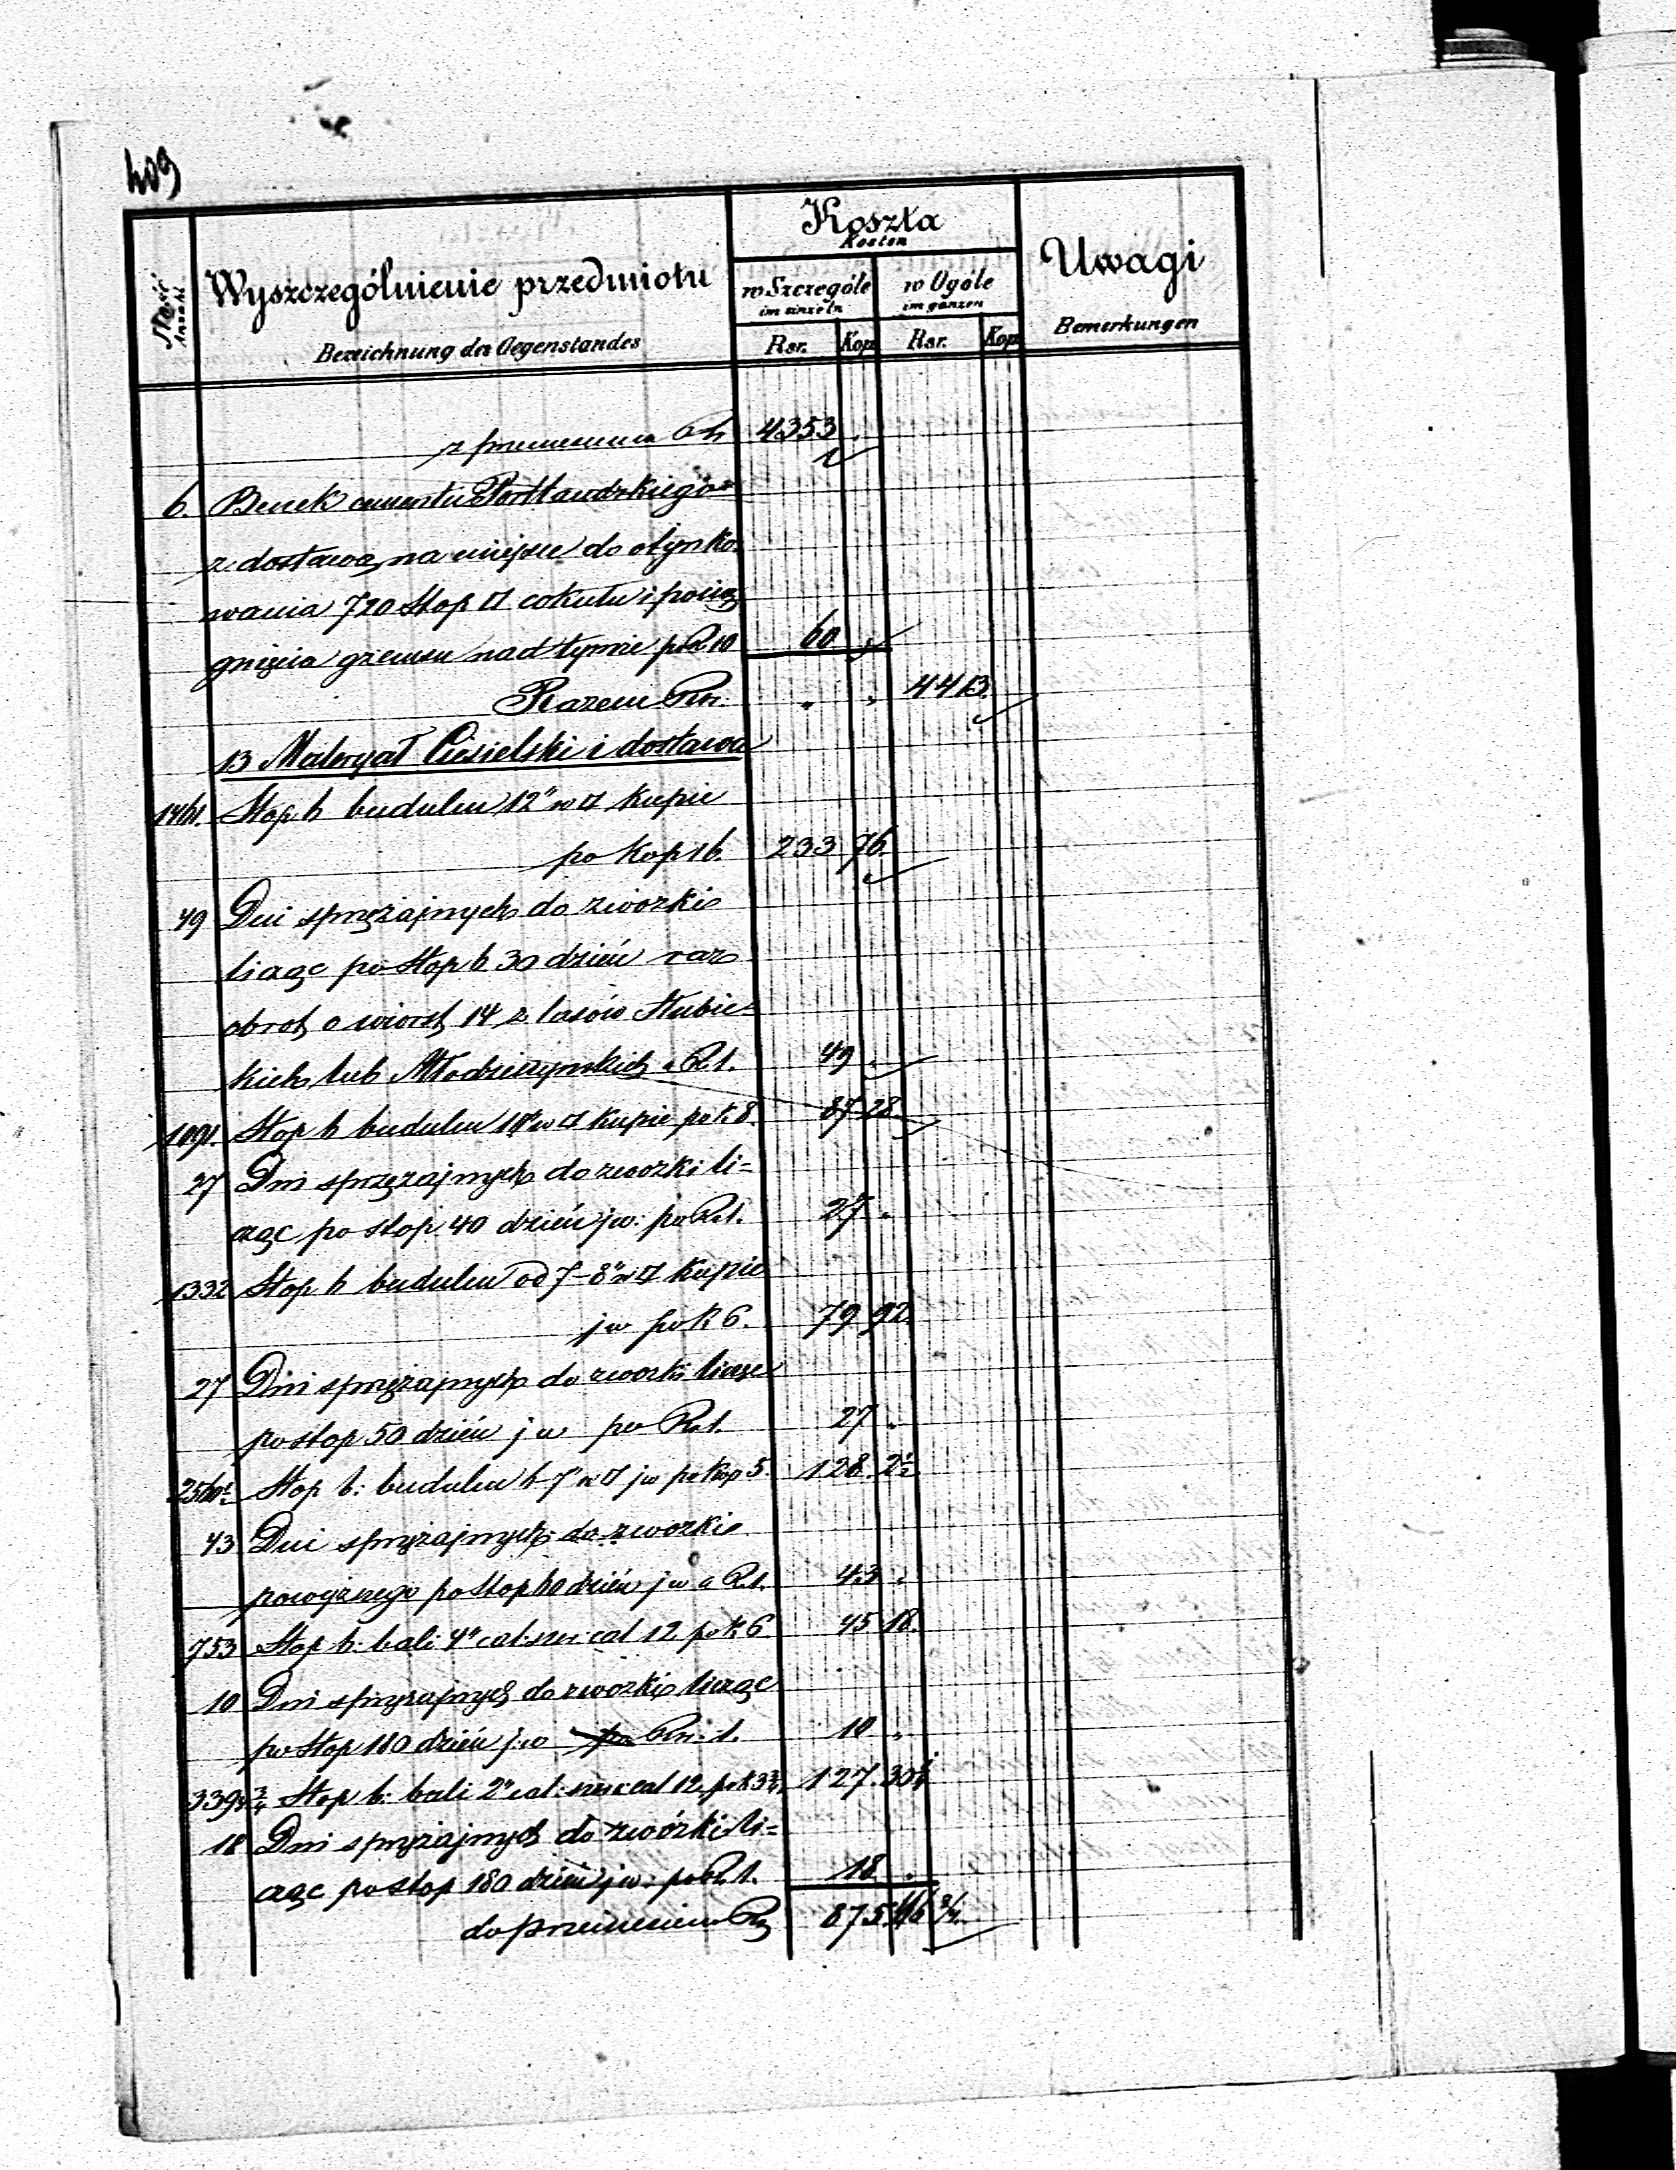 409
Ilość Anzahl | Wyszczególnienie przedmiotu Bezeichnung der Gegenstandes | Koszta Kosten | Uwagi Bemerkungen
w Szczególe im einzeln | w Ogóle im ganzen
Rsr. | Kop | Rsr. | Kop
z przeniesienia Rs | 4353 | .
6. Beczek cementu Portlandzkiego
z dostawą na miejsce do otynko
wania 720 stop □ cokułu i pocią
gnięcia gzemsu nad tymże po R 10 | 60 | „
Razem Rs. | „ | „ | 4413.
B Materyał Ciesielski i dostawa
1461. Stop b budulcu 12" w □ kupie
po kop 16. | 233 | 76.
49 Dni sprzężajnych do zwozki
licząc po stop b 30 dzień raz
obrot o wiorst 14 z lasów
kich lub Młodzieszynskich a R 1. | 49 | .
1091. Stop b budulcu 10" w □ kupie po k 8. | 87 | 28.
27 Dni sprzężajnych do zwozki li=
cząc po stop 40 dzień jw: po R 1. | 27 | „
1332 Stop b budulcu od 7-8" w □ kupie
jw po k 6. | 79 | 92.
27 Dni sprzężajnych do zwozki licząc
po stop 50 dzień jw po R 1. | 27 | „
2560½ Stop b: budulcu 6-7" w □ jw po kop 5. | 128. | 2½
43 Dni sprzężajnych do zwozki
powyższego po stop 60 dzień jw a R 1. | 43 | „
753 Stop b: bali 4" cal: szer: cal 12 po k 6. | 45 | 18.
10 Dni sprzężajnych do zwozki licząc
po stop 180 dzień j:w Rs. 1. | 10 | „
3394¾ Stop b: bali 2" cal: szer: cal 12. po k 3¾ | 127. | 30¼
18 Dni sprzężajnych do zwózki li=
cząc po stop 180 dzień jw: po R 1. | 18 | .
do przeniesienia Rs | 875. | 46¾.